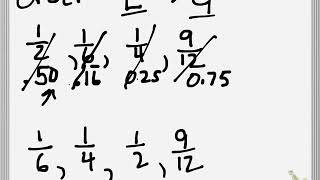 1/2, 1/6, 1/4, 9/12
.50 .16 0.25 0.75
1/6, 1/4, 1/2, 9/12